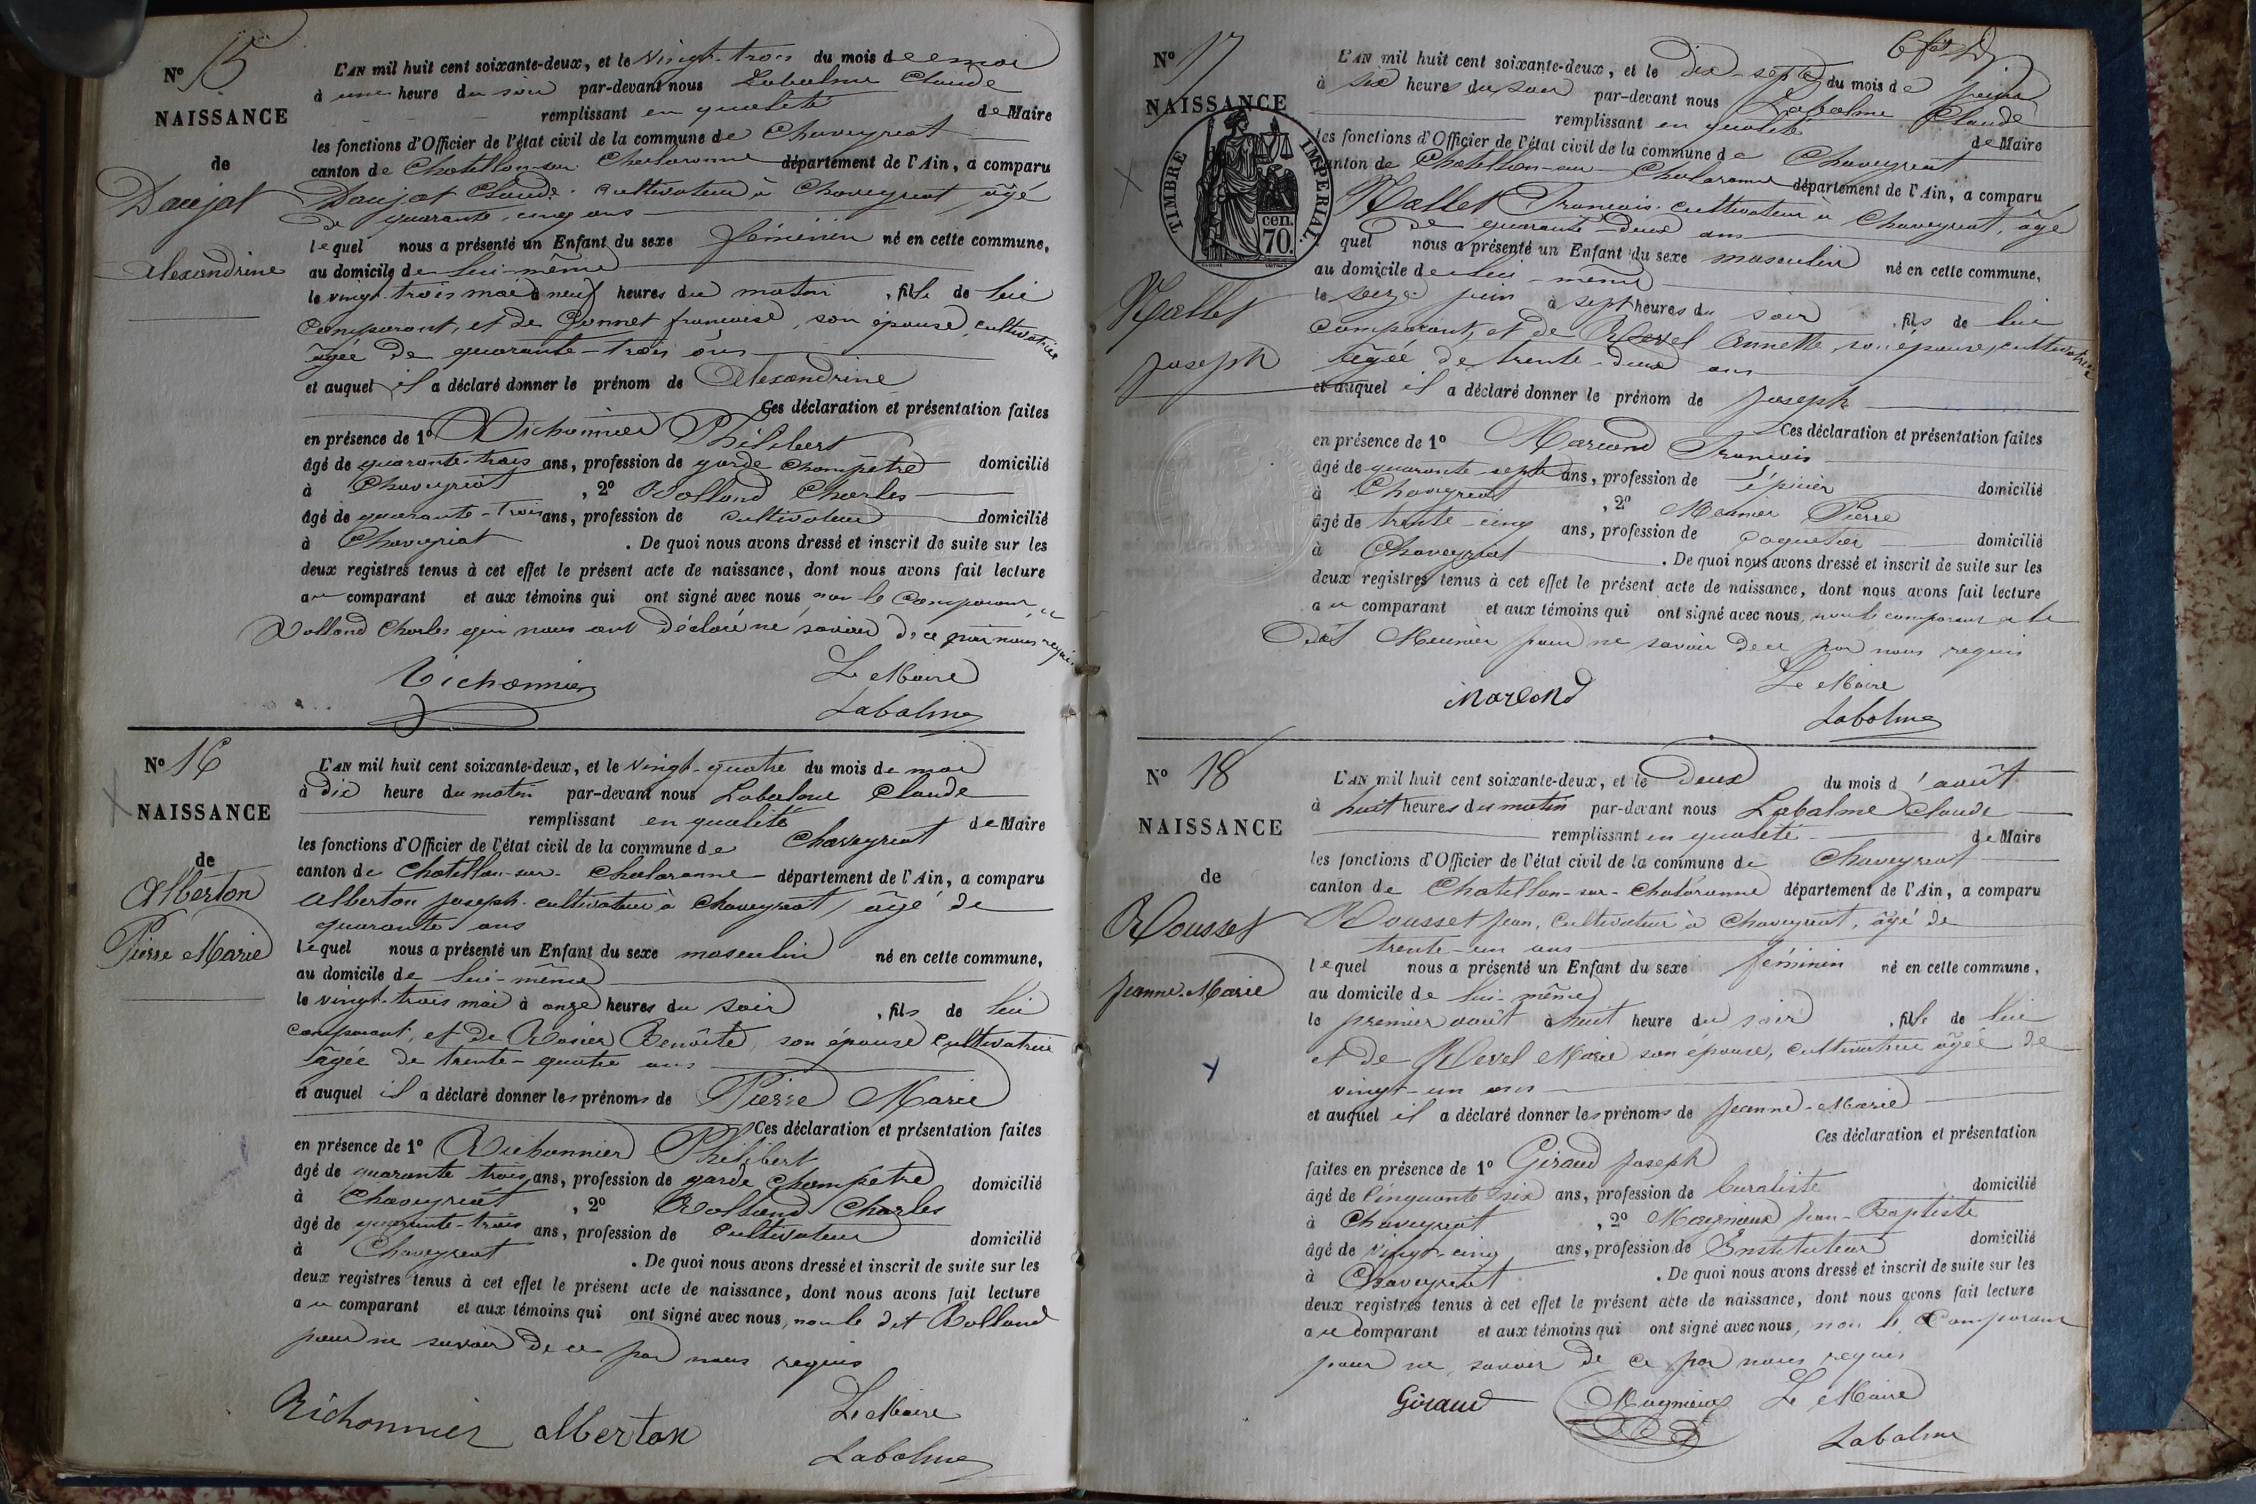 N° 15
NAISSANCE
de
Daujat
Alexandrine
L'AN mil huit cent soixante-deux, et le vingt-trois du mois de mai
à une heure du soir par-devant nous Labalme Claude
remplissant en qualité de Maire
les fonctions d'Officier de l'état civil de la commune de Chaveyriat
canton de Chatillon-sur-Chalaronne département de l'Ain, a comparu
Daujat Claude cultivateur à Chaveyriat, âgé
de quarante-cinq ans
lequel nous a présenté un Enfant du sexe féminin né en cette commune,
au domicile de lui-même
le vingt-trois mai à neuf heures du matin, fille de lui
comparant, et de Gonnet françoise, son épouse, cultivatrice
âgée de quarante-trois ans
et auquel il a déclaré donner le prénom de Alexandrine
Ces déclaration et présentation faites
en présence de 1° Richonnier Philibert
âgé de quarante-trois ans, profession de garde champêtre domicilié
à Chaveyriat, 2° Rolland Charles
âgé de quarante-trois ans, profession de cultivateur domicilié
à Chaveyriat. De quoi nous avons dressé et inscrit de suite sur les
deux registres tenus à cet effet le présent acte de naissance, dont nous avons fait lecture
au comparant et aux témoins qui ont signé avec nous non le comparant
Rolland Charles qui nous ont déclaré ne savoir de ce par nous requis
Richonnier
Le Maire
Labalme
N° 16
NAISSANCE
de
Alberton
Pierre Marie
L'AN mil huit cent soixante-deux, et le vingt-quatre du mois de mai
à dix heure du matin par-devant nous Labalme Claude
remplissant en qualité de Maire
les fonctions d'Officier de l'état civil de la commune de Chaveyriat
canton de Chatillon-sur-Chalaronne département de l'Ain, a comparu
Alberton Joseph cultivateur à Chaveyriat, âgé de
quarante ans
lequel nous a présenté un Enfant du sexe masculin né en cette commune,
au domicile de lui-même
le vingt-trois mai à onze heures du soir, fils de lui
comparant, et de Rosier Benoîte, son épouse cultivatrice
âgée de trente-quatre ans
et auquel il a déclaré donner les prénoms de Pierre Marie
Ces déclaration et présentation faites
en présence de 1° Richonnier Philibert
âgé de quarante trois ans, profession de garde champêtre domicilié
à Chaveyriat, 2° Rolland Charles
âgé de quarante-trois ans, profession de cultivateur domicilié
à Chaveyriat. De quoi nous avons dressé et inscrit de suite sur les
deux registres tenus à cet effet le présent acte de naissance, dont nous avons fait lecture
au comparant et aux témoins qui ont signé avec nous, non le dit Rolland
pour ne savoir de ce par nous requis
Richonnier Alberton
Le Maire
Labalme
N° 17
NAISSANCE
TIMBRE IMPERIAL
cen.
70.
Mallet
Joseph
L'AN mil huit cent soixante-deux, et le dix-sept du mois de juin
à six heures du soir par-devant nous Labalme Claude
remplissant en qualité de Maire
les fonctions d'Officier de l'état civil de la commune de Chaveyriat
canton de Chatillon-sur-Chalaronne département de l'Ain, a comparu
Mallet Francois cultivateur à Chaveyriat, âgé
de quarante-deux ans
quel nous a présenté un Enfant du sexe masculin né en cette commune,
au domicile de lui-même
le seize juin à sept heures du soir, fils de lui
comparant, et de Revel Annette, son épouse, cultivatrice
âgée de trente-deux ans
et auquel il a déclaré donner le prénom de Joseph
Ces déclaration et présentation faites
en présence de 1° Marand Francois
âgé de quarante-sept ans, profession de épicier domicilié
à Chaveyriat, 2° Meunier Pierre
âgé de trente-cinq ans, profession de coquetier domicilié
à Chaveyriat. De quoi nous avons dressé et inscrit de suite sur les
deux registres tenus à cet effet le présent acte de naissance, dont nous avons fait lecture
au comparant et aux témoins qui ont signé avec nous, non le comparant et le
dit Meunier pour ne savoir de ce par nous requis
Le Maire
Labalme
N° 18
NAISSANCE
de
Rousset
Jeanne-Marie
L'AN mil huit cent soixante-deux, et le deux du mois d'août
à huit heures du matin par-devant nous Labalme Claude
remplissant en qualité de Maire
les fonctions d'Officier de l'état civil de la commune de Chaveyriat
canton de Chatillon-sur-Chalaronne département de l'Ain, a comparu
Rousset Jean, cultivateur à Chaveyriat, âgé de
trente-un ans
lequel nous a présenté un Enfant du sexe féminin né en cette commune,
au domicile de lui-même
le premier août à huit heure du soir, fille de lui
et de Revel Marie son épouse, cultivatrice âgée de
vingt-un ans
et auquel il a déclaré donner les prénoms de Jeanne-Marie
Ces déclaration et présentation
faites en présence de 1° Giraud Joseph
âgé de cinquante six ans, profession de buraliste domicilié
à Chaveyriat, 2° Magnieux Jean-Baptiste
âgé de vingt-cinq ans, profession de Instituteur domicilié
à Chaveyriat. De quoi nous avons dressé et inscrit de suite sur les
deux registres tenus à cet effet le présent acte de naissance, dont nous avons fait lecture
au comparant et aux témoins qui ont signé avec nous, non le comparant
pour ne savoir de ce par nous requis
Giraud
Le Maire
Labalme